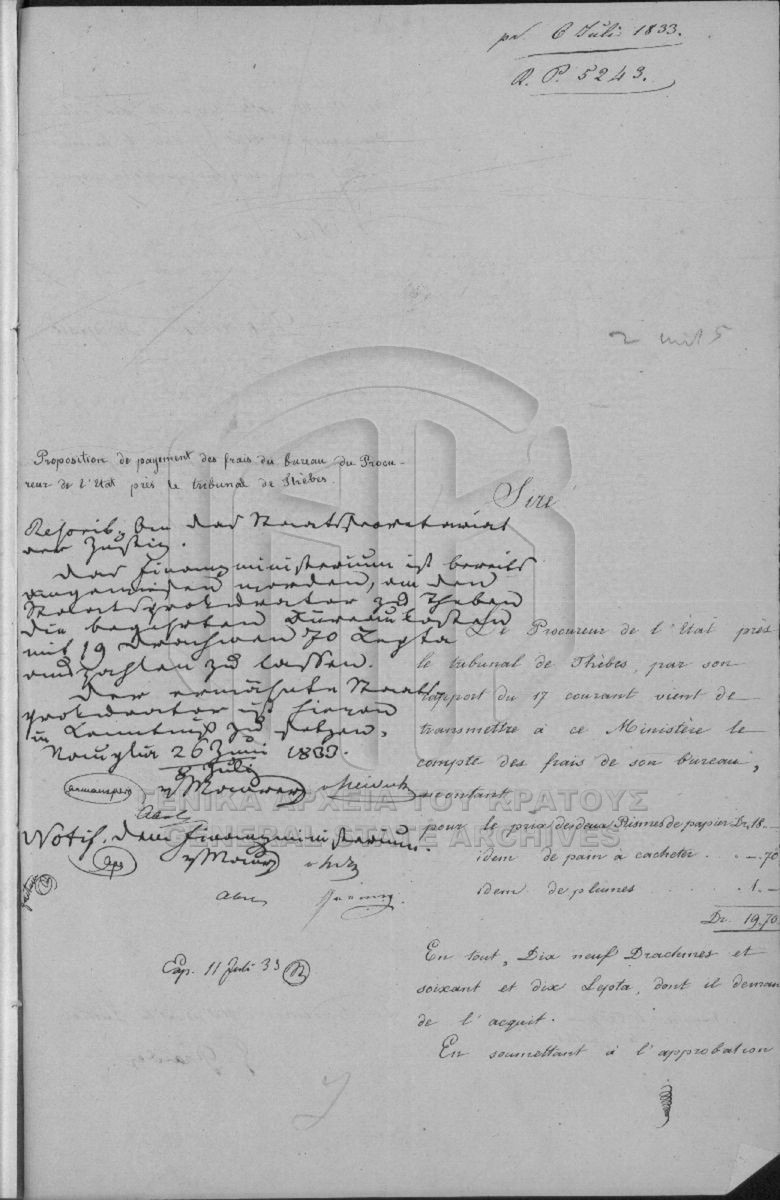 6 Juli 1833.
R. P. 5243.
2 mit 5
Proposition de payement des frais du bureau du Procu-
reur de l'Etat près le tribunal de Thèbes.
Sire
Rescrib. An das Staatssecretariat
der Justiz.
Das Finanzministerium ist bereits
angewiesen worden, an den
Staatsprokurator zu Theben
die begehrten Bureaukosten
mit 19 Drachmen 70 Lepta
auszahlen zu lassen.
Der erwähnte Staats-
prokurator ist hievon
in Kenntniß zu setzen.
Nauplia 26 Juni 1833.
8 Juli
Armansperg v Maurer v Heideck
Abel
Notif. dem Finanzministerium.
v Maur
Abel
Exp. 11 Juli 33
Le Procureur de l'État près
le tribunal de Thèbes, par son
rapport du 17 courant vient de
transmettre à ce Ministère le
compte des frais de son bureau,
montant
pour le prix des deux Rismes de papier Dr. 18.–
idem de pain a cacheter . . –.70
idem de plumes . . . . 1.–
Dr. 19.70
En tout, Dix neuf Drachmes et
soixant et dix Lepta, dont il deman
de l'acquit.
En soumettant à l'approbation
ΓΕΝΙΚΑ ΑΡΧΕΙΑ ΤΟΥ ΚΡΑΤΟΥΣ
GENERAL STATE ARCHIVES